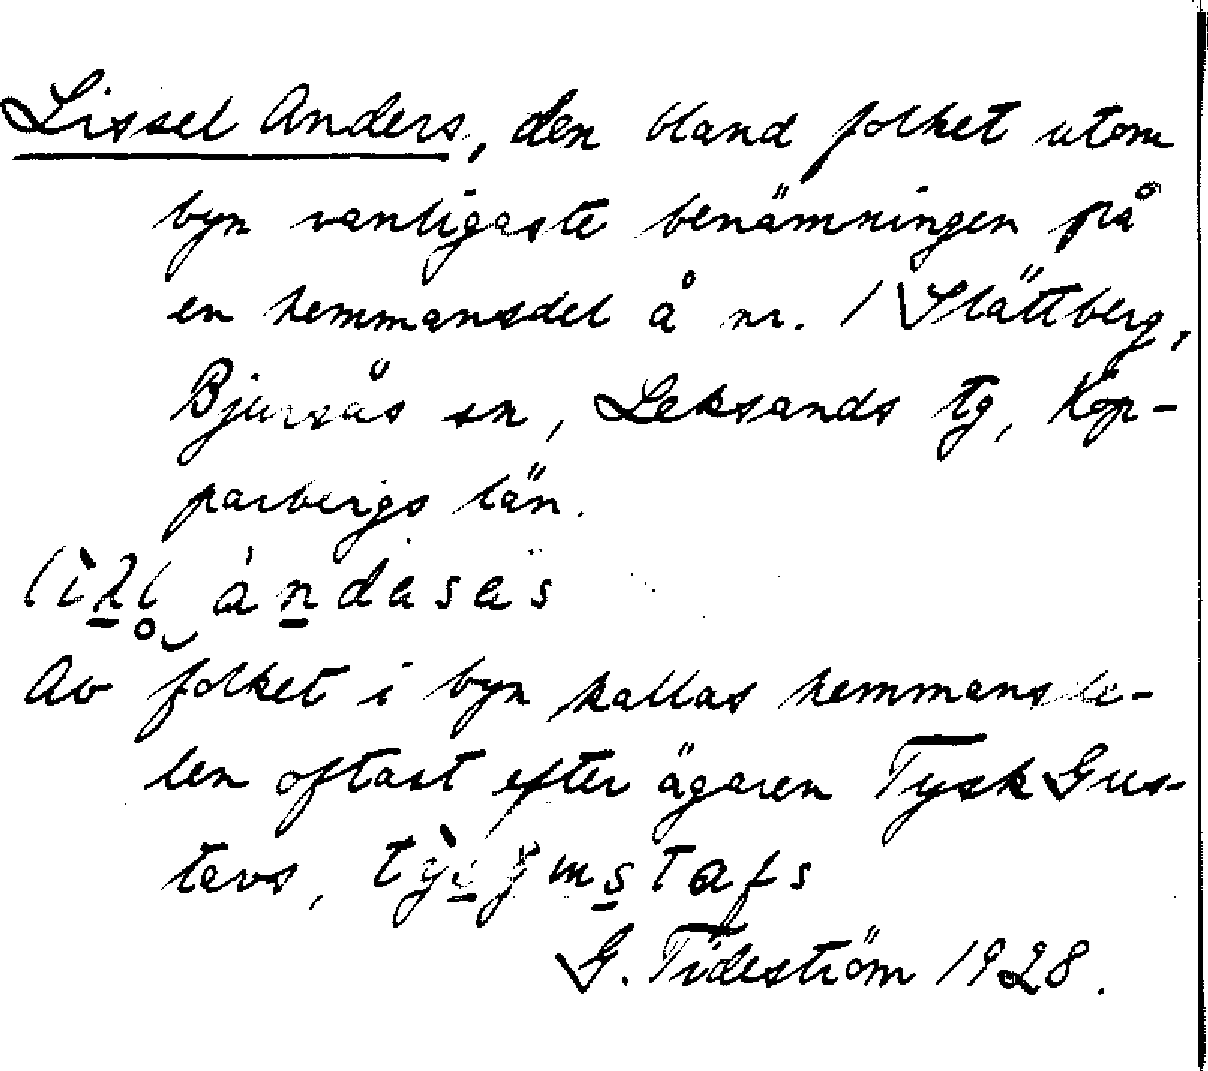 Lissel Anders, den bland folket utom
byn vanligaste benämningen på
en hemmansdel å nr. 1 Slättberg,
Bjursås sn, Leksands tg, Kop-
parbergs län.
åndasas
Av folket i byn kallas hemmansde-
len oftast efter ägaren Tysk Gus-
tavs,
G. Tideström 1928.